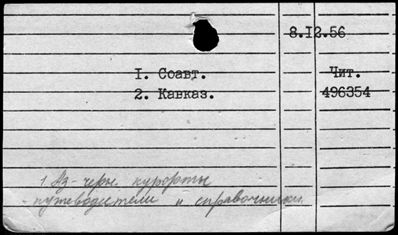 8.I2.56
I. Соавт.
Чит.
2. Кавказ.
496354
1. Аз-черн. курорты
-путеводители и справочники.